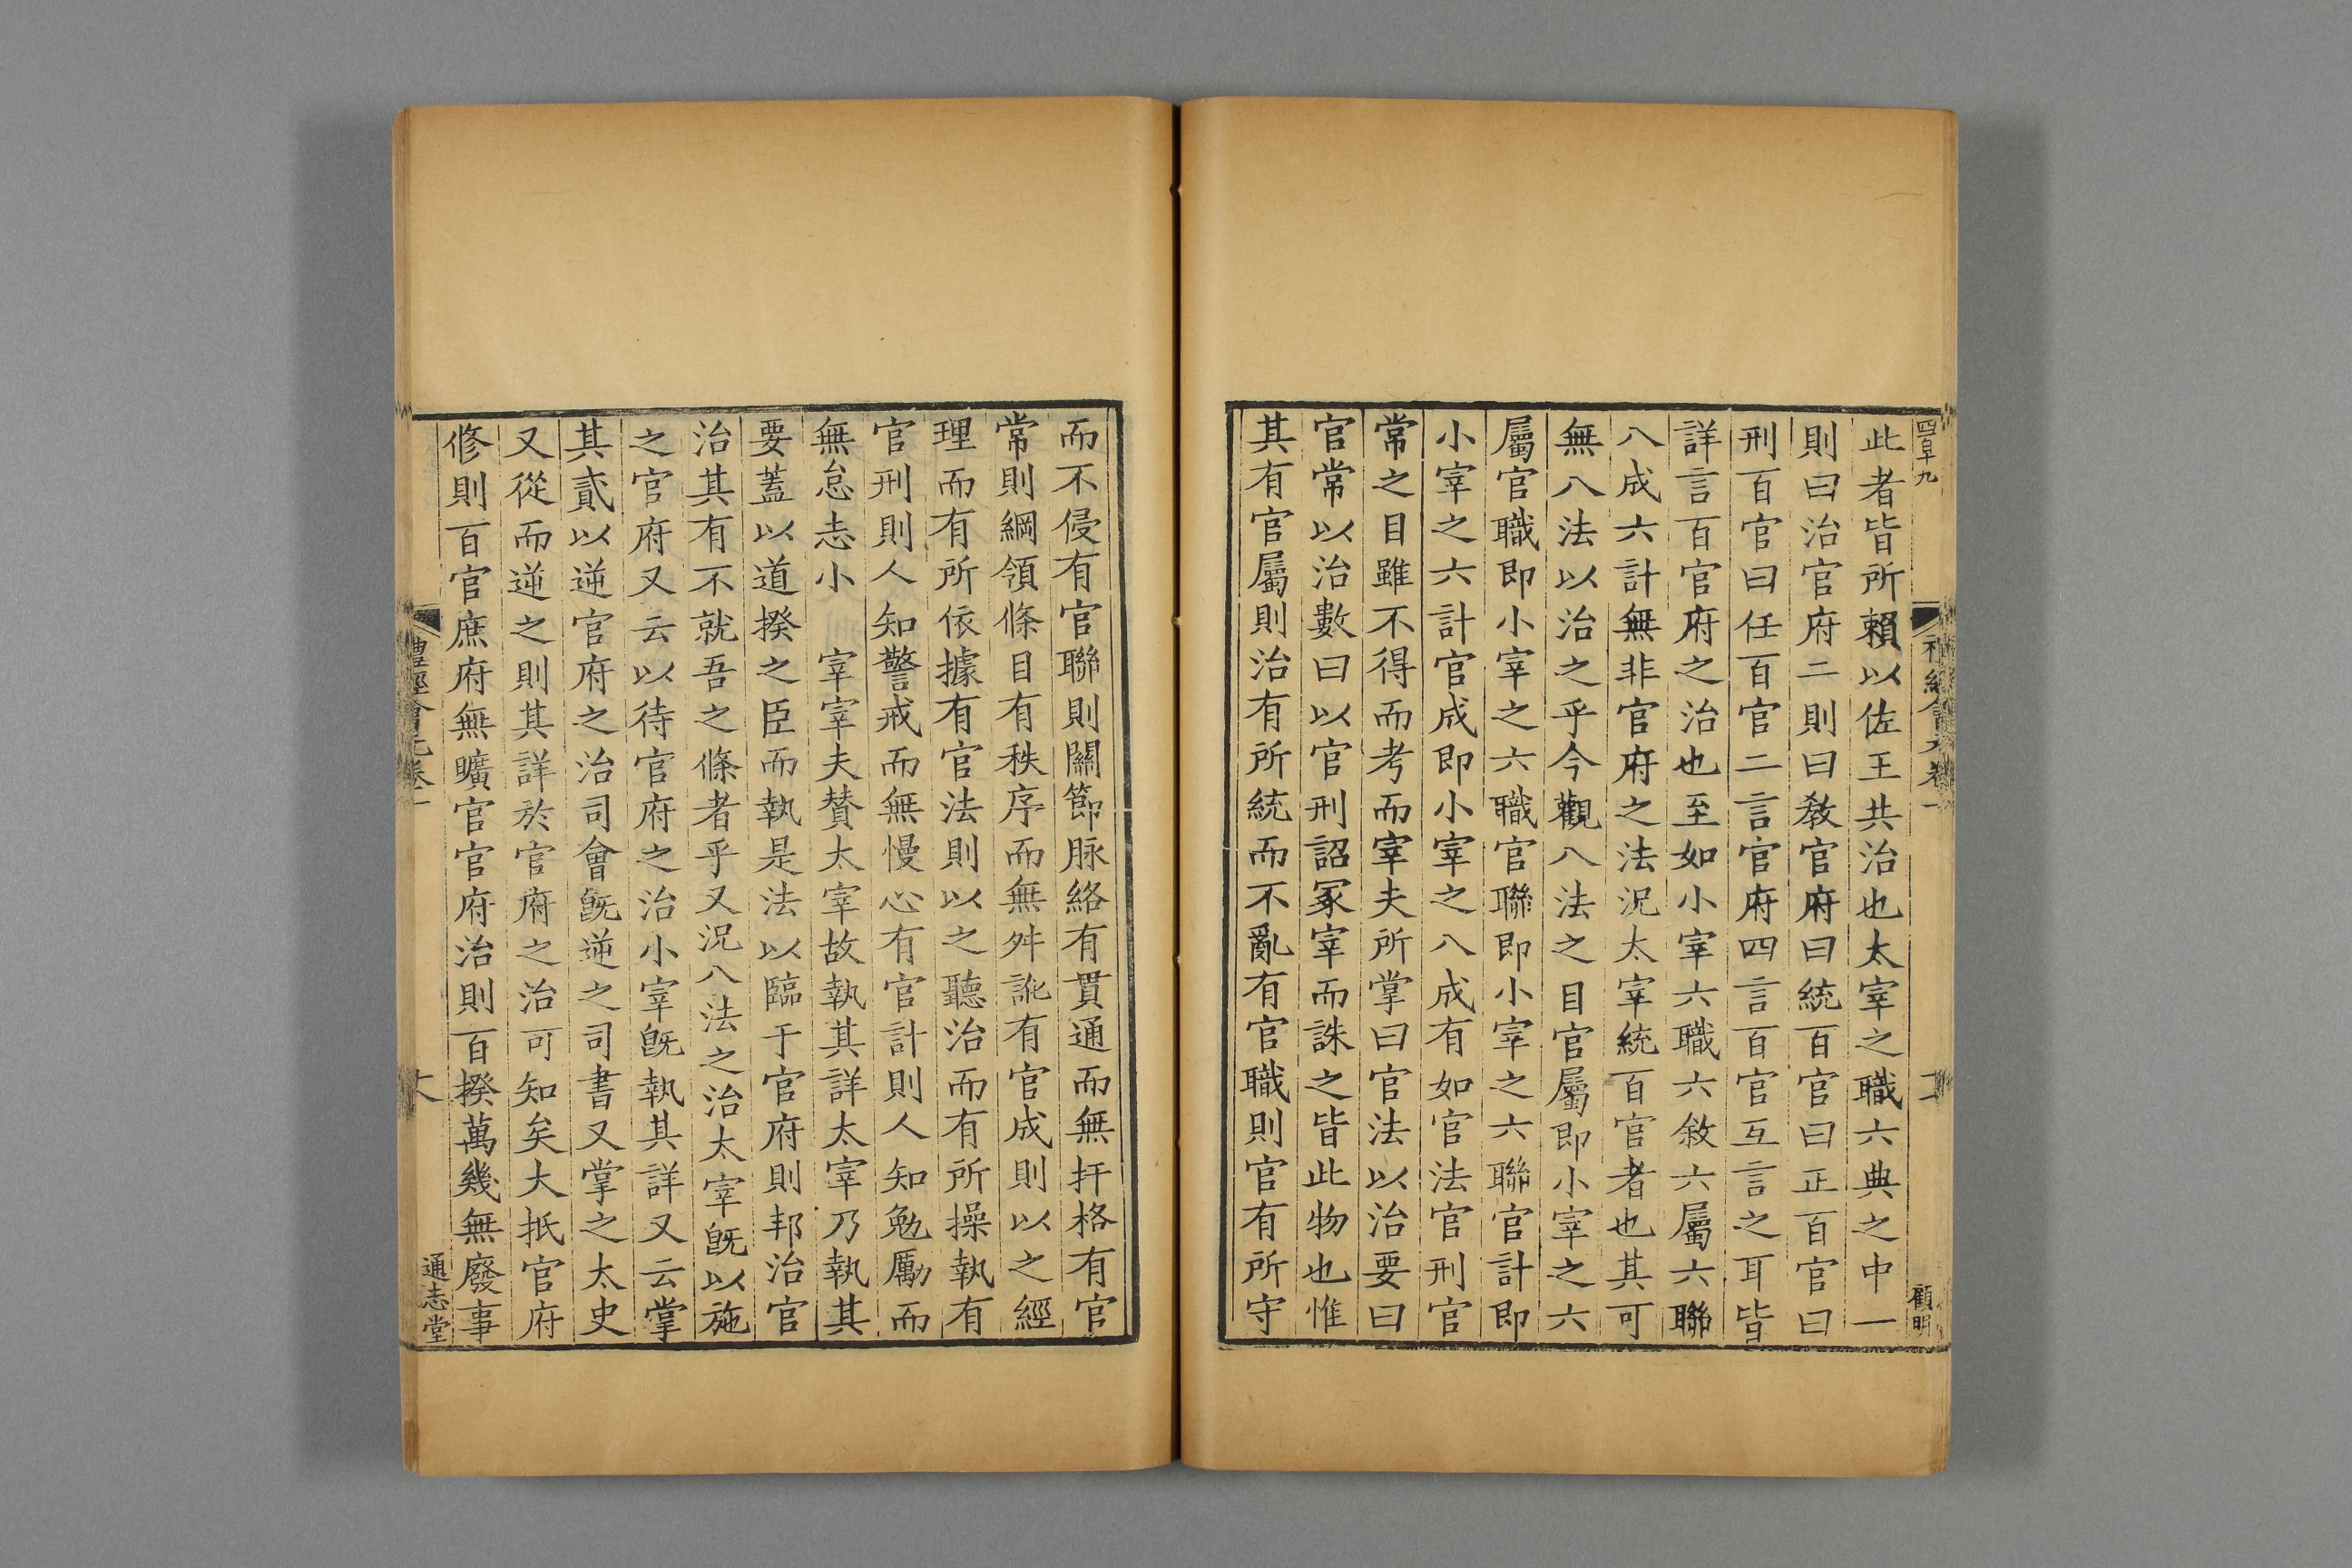 此者皆所賴以佐王共治也太宰之職六典之中一
則曰治官府二則曰敎官府曰統百官曰正百官曰
刑百官曰任百官二言官府四言百官互言之耳皆
詳言百官府之治也至如小宰六職六敘六屬六聯
八成六計無非官府之法況太宰統百官者也其可
無八法以治之乎今觀八法之目官屬即小宰之六
屬官職即小宰之六職官聯即小宰之六聯官計即
小宰之六計官成即小宰之八成有如官法官刑官
常之目雖不得而考而宰夫所掌曰官法以治要曰
官常以治數曰以官刑詔冢宰而誅之皆此物也惟
其有官屬則治有所統而不亂有官職則官有所守
而不侵有官聯則關節脉絡有貫通而無扞格有官
常則綱領條目有秩序而無舛訛有官成則以之經
理而有所依據有官法則以之聽治而有所操執有
官刑則人知警戒而無慢心有官計則人知勉勵而
無怠志小宰宰夫贊太宰故執其詳太宰乃執其
要蓋以道揆之臣而執是法以臨于官府則邦治官
治其有不就吾之條者乎又況八法之治太宰旣以施
之官府又云以待官府之治小宰旣執其詳又云掌
其貳以逆官府之治司會旣逆之司書又掌之太史
又從而逆之則其詳於官府之治可知矣大抵官府
修則百官庶府無曠官官府治則百揆萬幾無廢事
禮經會元卷一
通志堂